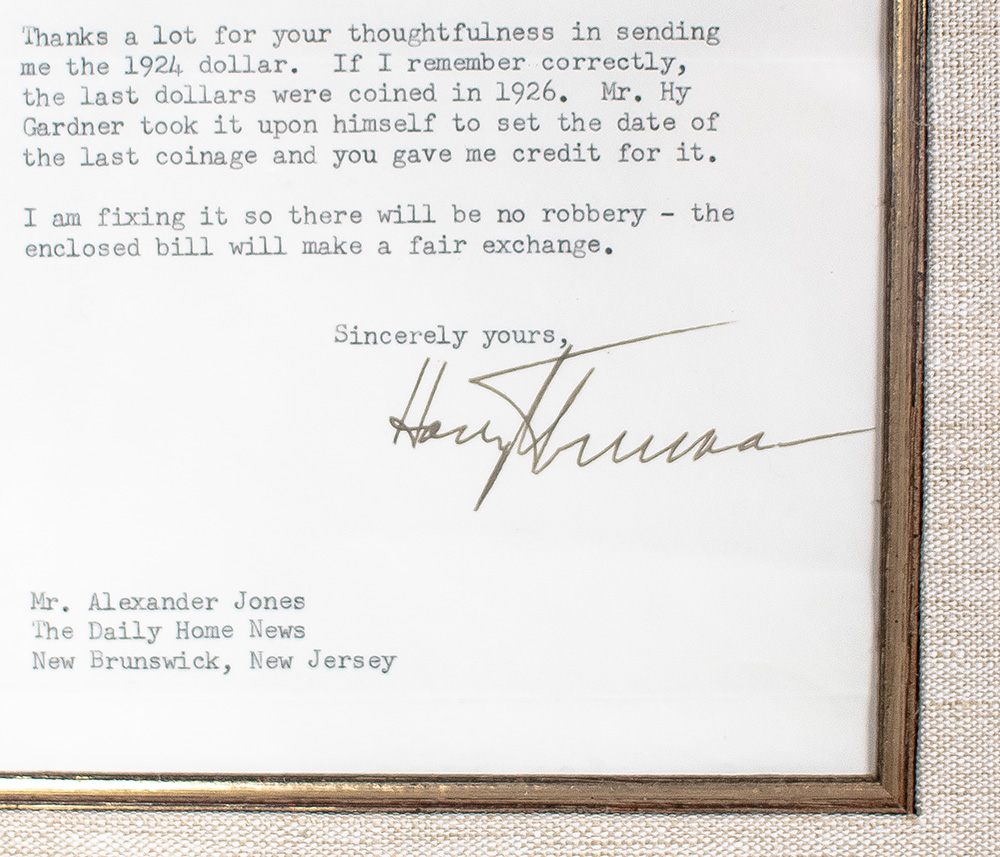 Thanks a lot for your thoughtfulness in sending
me the 1924 dollar.  If I remember correctly,
the last dollars were coined in 1926.  Mr. Hy
Gardner took it upon himself to set the date of
the last coinage and you gave me credit for it.
I am fixing it so there will be no robbery - the
enclosed bill will make a fair exchange.
Sincerely yours,
Harry Truman
Mr. Alexander Jones
The Daily Home News
New Brunswick, New Jersey